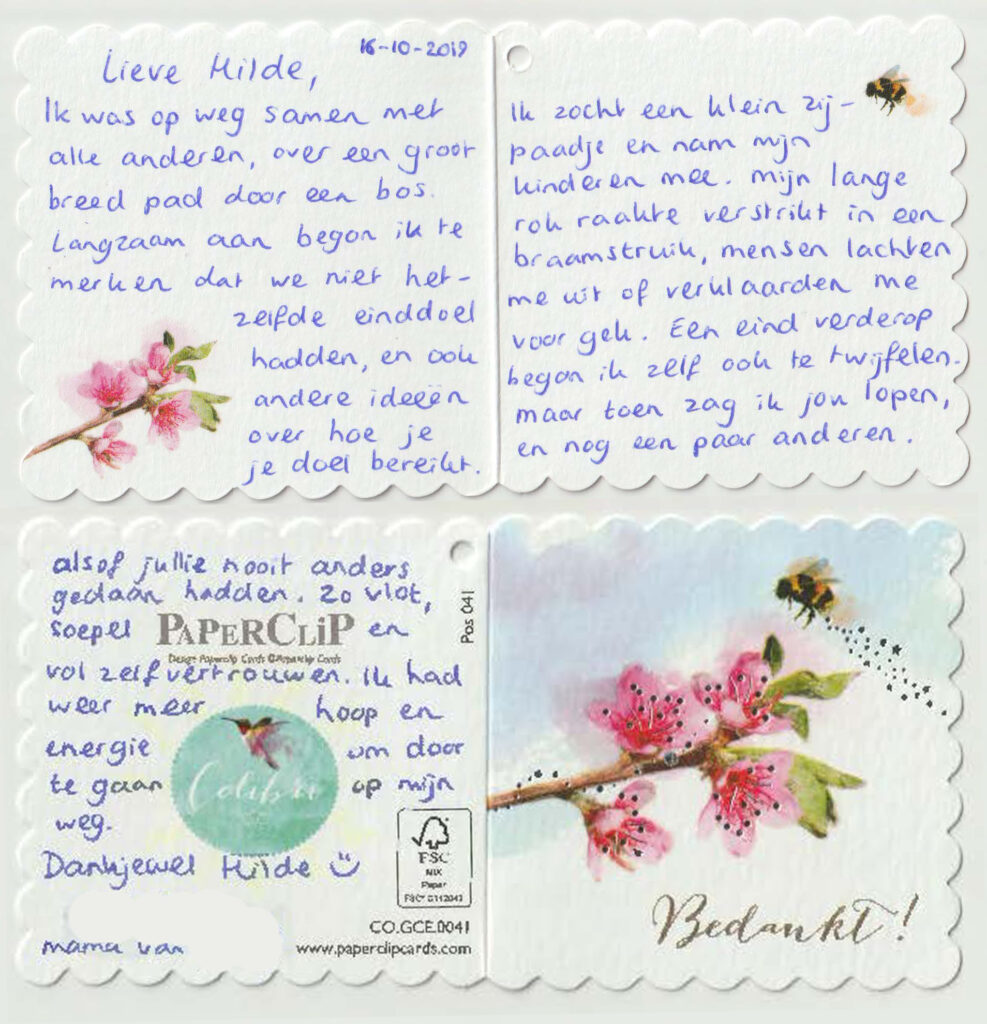 16-10-2019
Lieve Hilde,
Ik was op weg samen met
alle anderen, over een groot
breed pad door een bos.
Langzaam aan begon ik te
merken dat we niet het-
zelfde einddoel
hadden, en ook
andere ideeën
over hoe je
je doel bereikt.
Ik zocht een klein zij-
paadje en nam mijn
kinderen mee. Mijn lange
rok raakte verstrikt in een
braamstruik, mensen lachten
me uit of verklaarden me
voor gek. Een eind verderop
begon ik zelf ook te twijfelen.
maar toen zag ik jou lopen,
en nog een paar anderen.
alsof jullie nooit anders
gedaan hadden. Zo vlot,
soepel en
PAPERCLiP
Design Paperclip Cards ©Paperclip Cards
vol zelfvertrouwen. Ik had
weer meer hoop en
energie om door
te gaan op mijn
weg.
Colibri
Dankjewel Hilde
mama van
Pos 041
FSC
MIX
Paper
CO.GCE.0041
www.paperclipcards.com
Bedankt!